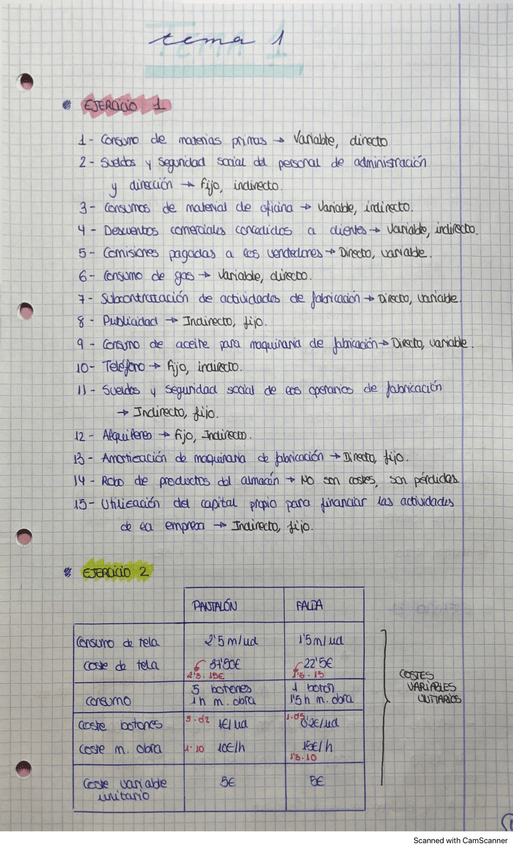 tema 1
EJERCICIO 1
1- Consumo de materias primas → Variable, directo
2- Sueldos y Seguridad social del personal de administración
y dirección → Fijo, indirecto.
3- Consumos de material de oficina → Variable, indirecto.
4- Descuentos comerciales concedidos a clientes → Variable, indirecto.
5- Comisiones pagadas a los vendedores → Directo, variable.
6- Consumo de gas → Variable, directo.
7- Subcontratación de actividades de fabricación → Directo, variable.
8- Publicidad → Indirecto, fijo.
9- Consumo de aceite para maquinaria de fabricación → Directo, variable.
10- Teléfono → Fijo, indirecto.
11- Sueldos y seguridad social de los operarios de fabricación
→ Indirecto, fijo.
12- Alquileres → Fijo, Indirecto.
13- Amortización de maquinaria de fabricación → Directa, fijo.
14- Robo de productos del almacén → NO son costes, son pérdidas
15- Utilización del capital propio para financiar las actividades
de la empresa → Indirecto, fijo.
EJERCICIO 2
PANTALÓN FALDA
Consumo de tela 2'5 m/ud 1'5 m/ud
Coste de tela 37'50€ 22'5€
2'5 · 15€ 1'5 · 15
consumo 5 botones 1 botón
1h m. obra 1'5h m. obra
Coste botones 1€/ud
Coste m. obra 1·10 10€/h 15€/h
1'5·10
Coste variable unitario 5€ 5€
COSTES
VARIABLES
UNITARIOS
Scanned with CamScanner